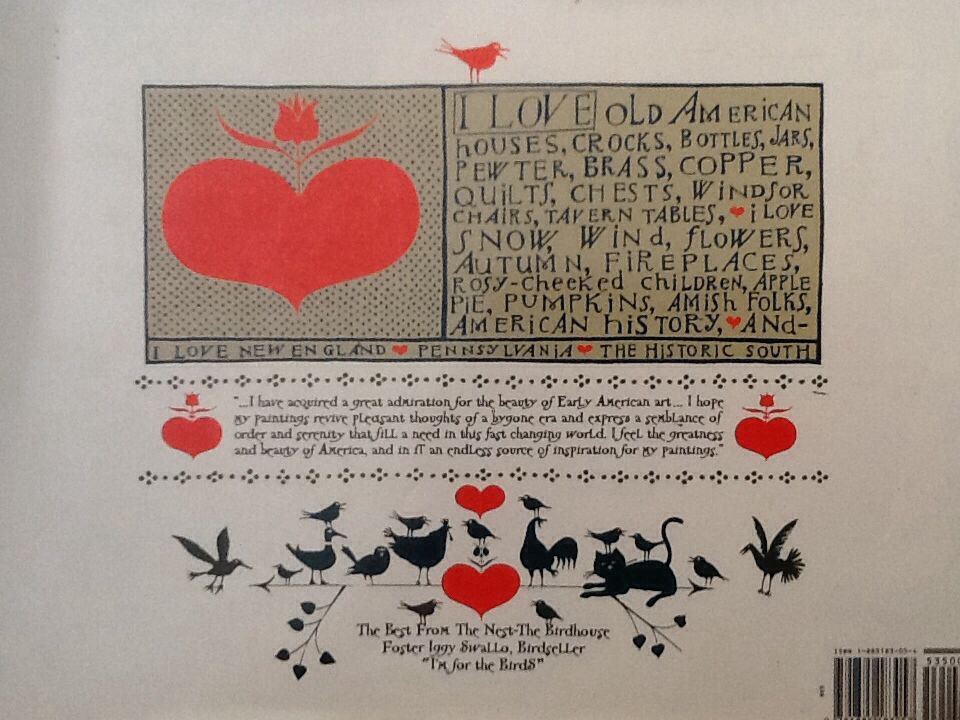 I LOVE OLD AMERICAN
hOUSES, CROCKS, BOTTLES, JARS,
PEWTER, BRASS, COPPER,
QUILTS, CHESTS, WiNDSOR
CHAIRS, TAVERN TABLES, ❤ i LOVE
SNOW, WiNd, fLOWERS,
AUTUMN, FiREPLACES,
ROSY-cheeked chiLdREN, APPLE
PiE, PUMPKiNS, AMiSH FOLKS,
AMERiCAN hiSTORY, ❤ ANd-
I LOVE NEW ENGLAND ❤ PENNSYLVANiA ❤ THE HiSTORIC SOUTH
"...I have acquired a great admiration for the beauty of Early American art... I hope
my paintings revive pleasant thoughts of a bygone era and express a semblance of
order and serenity that fill a need in this fast changing world. I feel the greatness
and beauty of America, and in it an endless source of inspiration for my paintings."
The Best From The Nest-The Birdhouse
Foster Iggy Swallo, Birdseller
"I'm for the Birds"
5350